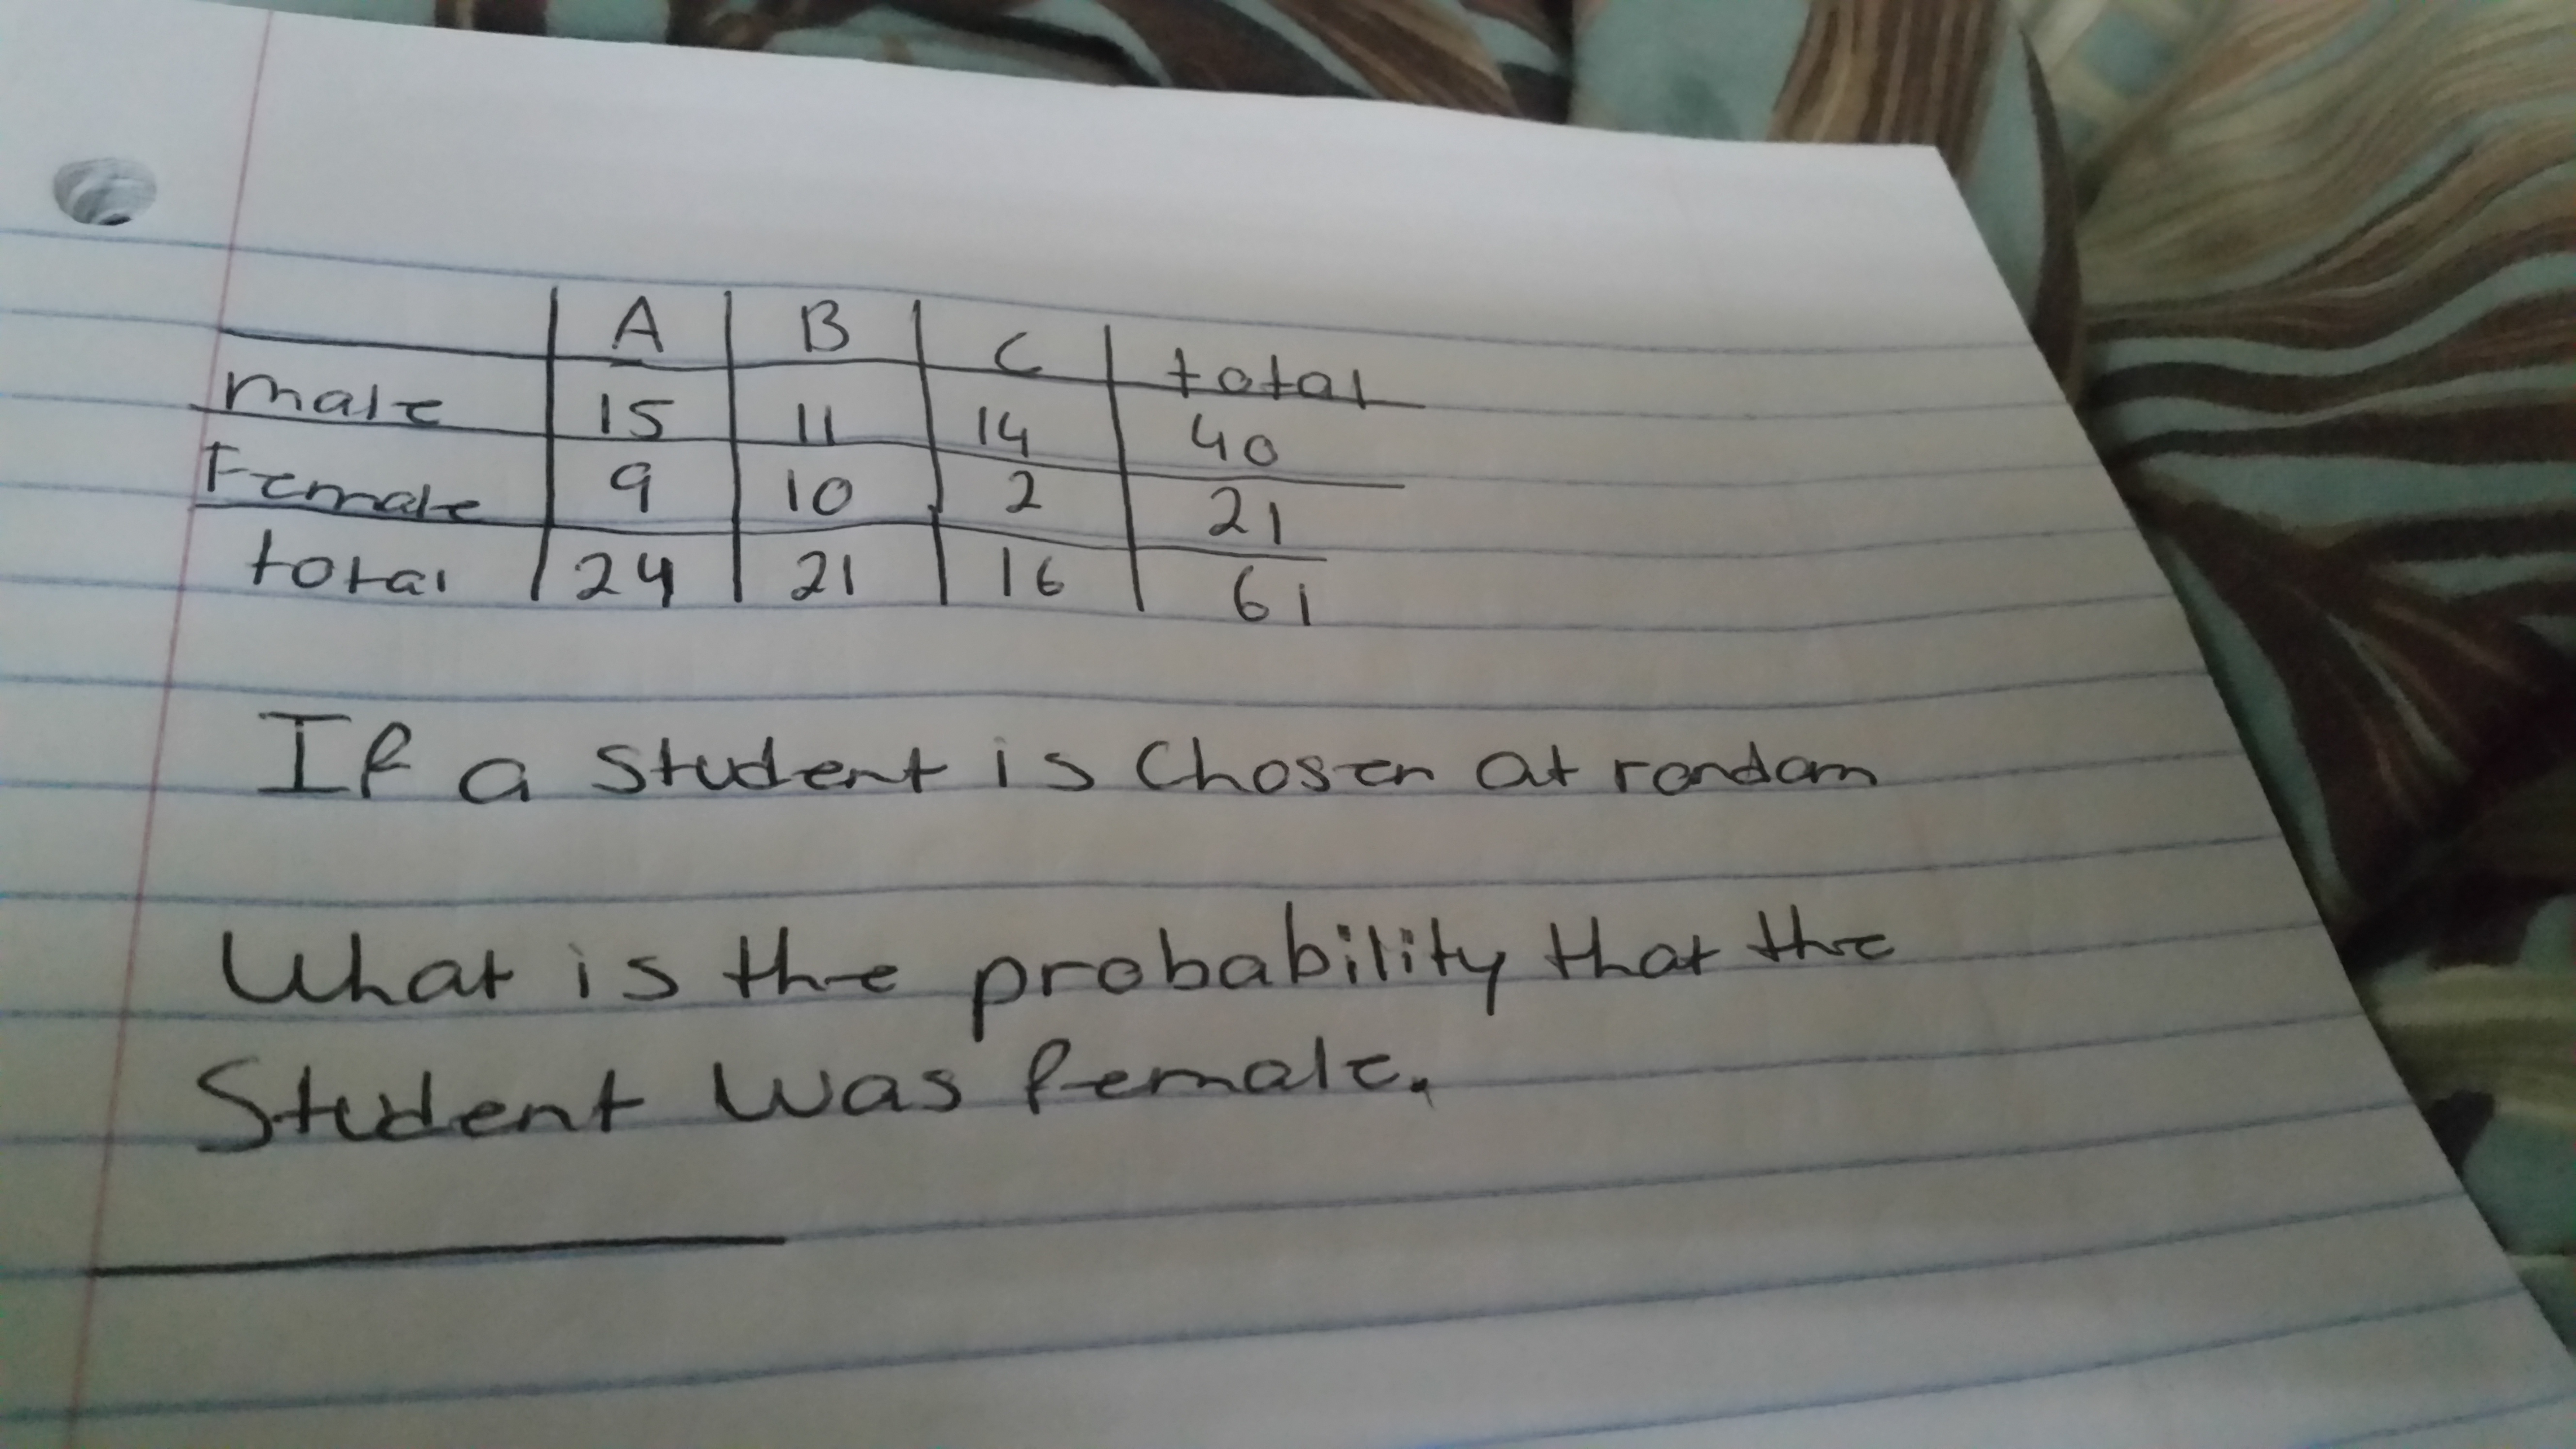 A B C total
male 15 11 14 40
Female 9 10 2 21
total 24 21 16 61
If a student is chosen at random
What is the probability that the
Student was female.